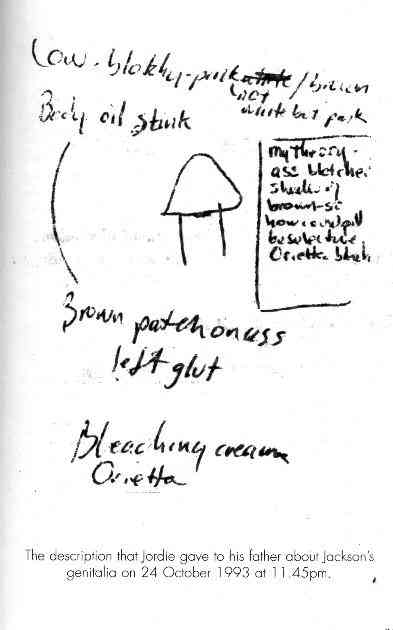 Cow-blotchy-pink /brown
not
white but pink
Body oil stink
my theory -
ass
of
brown-
how
Orietta
Brown patch on ass
left glut
Bleaching cream
Orietta
The description that Jordie gave to his father about Jackson's
genitalia on 24 October 1993 at 11.45pm.